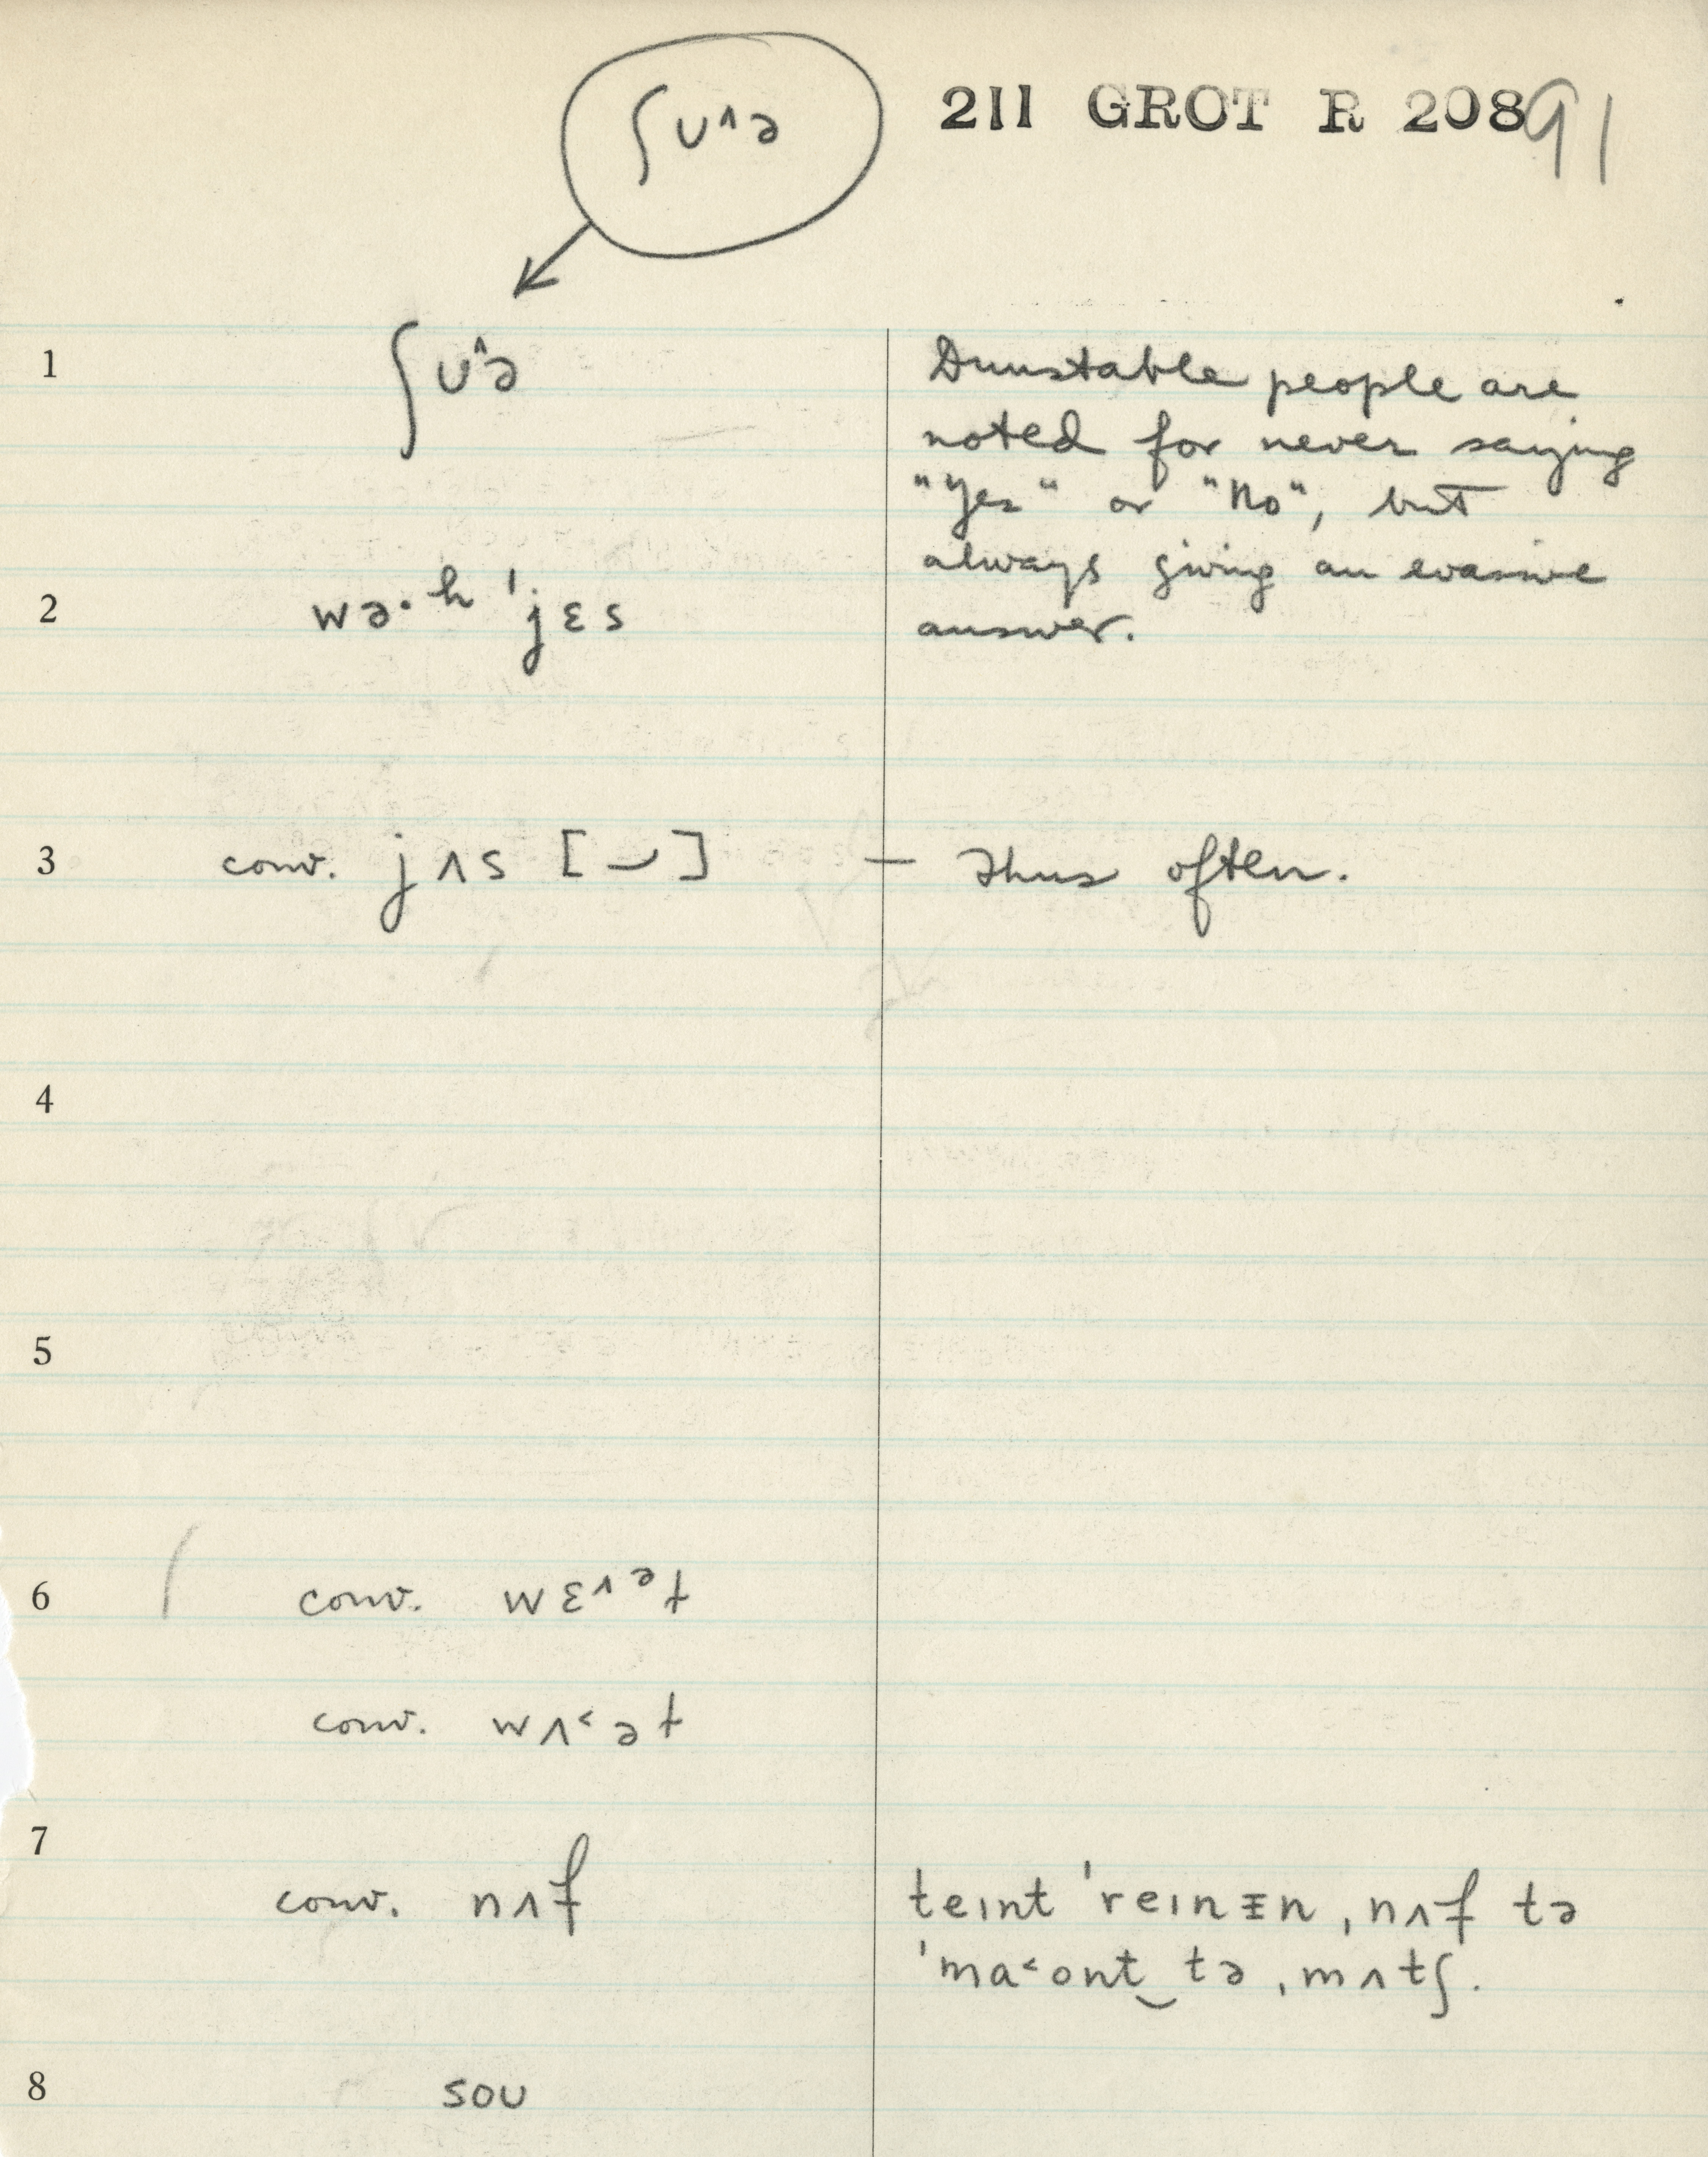 ʃʊ^ə
211 GROT R 208 91
1 ʃʊ^ə Dunstable people are
noted for never saying
"Yes" or "No", but
always giving an evasive
2 wə·ʰ ˈjɛs answer.
3 conv. jʌs [⌣] — Thus often.
4
5
6 conv. wɛ^ᵊt
conv. wʌ˂ət
7
conv. nʌf teɪnt ˈreɪnɪn, nʌf tə
ˈma˂ont‿tə ˌmʌtʃ.
8 soʊ